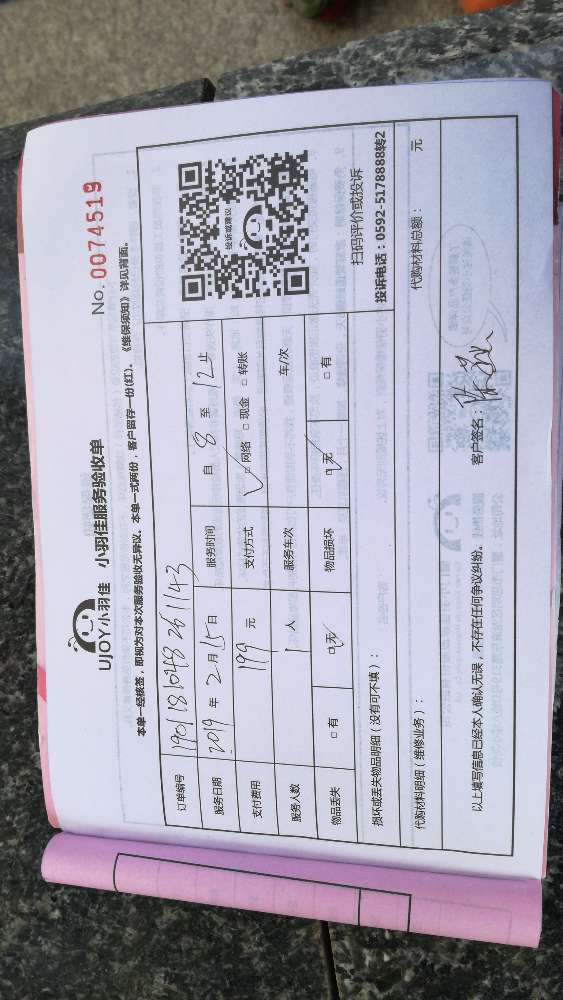 UJOY小羽佳 小羽佳服务验收单
No. 0074519
本单一经核签，即视为对本次服务验收无异议。本单一式两份，客户留存一份(红)。《维保须知》详见背面。
订单编号 190118104826 1143
服务日期 2019 年 2 月 15 日 服务时间 自 8 至 12 止
支付费用 199 元 支付方式 ☑ 网络 □ 现金 □ 转账
服务人数 1 人 服务车次 车/次
物品丢失 □ 有 ☑ 无 物品损坏 ☑ 无 □ 有
投诉或建议
扫码评价或投诉
投诉电话：0592-5178888转2
损坏或丢失物品明细（没有可不填）：
代购材料明细（维修业务）： 代购材料总额： 元
以上填写信息已经本人确认无误，不存在任何争议纠纷。 客户签名：